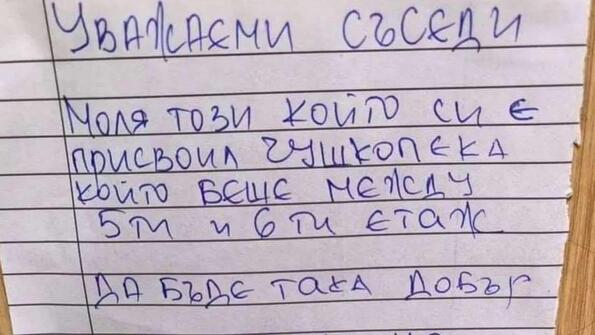 УВАЖАЕМИ СЪСЕДИ
МОЛЯ ТОЗИ КОЙТО СИ Е
ПРИСВОИЛ ЧУШКОПЕКА
КОЙТО БЕШЕ МЕЖДУ
5ТИ И 6ТИ ЕТАЖ
ДА БЪДЕ ТАКА ДОБЪР